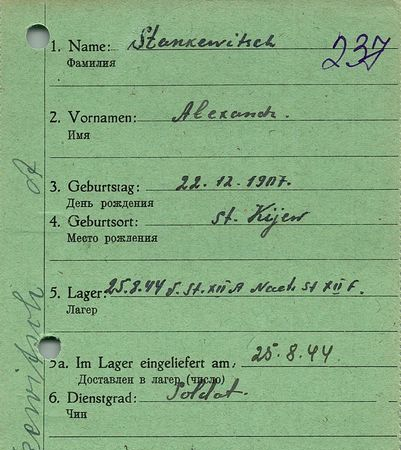 1. Name: Stankewitsch 237
Фамилия
2. Vornamen: Alexandr.
Имя
3. Geburtstag: 22.12.1907.
День рождения
4. Geburtsort: St. Kijew
Место рождения
5. Lager: 25.8.44 St. XII A Nach St XII F.
Лагер
5a. Im Lager eingeliefert am 25.8.44
Доставлен в лагер (число)
6. Dienstgrad: Soldat.
Чин